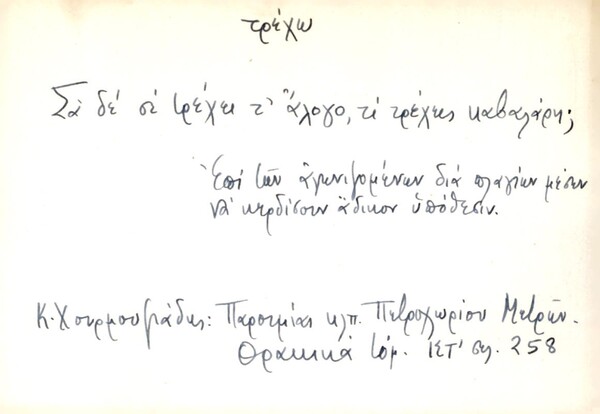 τρέχω
Σὰ δέ σὲ τρέχει τ' ἄλογο, τί τρέχεις καβαλάρη;
Ἐπὶ τῶν ἀγωνιζομένων διὰ πλαγίων μέσων
νὰ κερδίσουν ἄδικον ὑπόθεσιν.
Κ. Χουρμουζιάδης: Παροιμίαι κλπ. Πετροχωρίου Μετρῶν.
Θρακικά τόμ. ΙΣΤ' σελ. 258